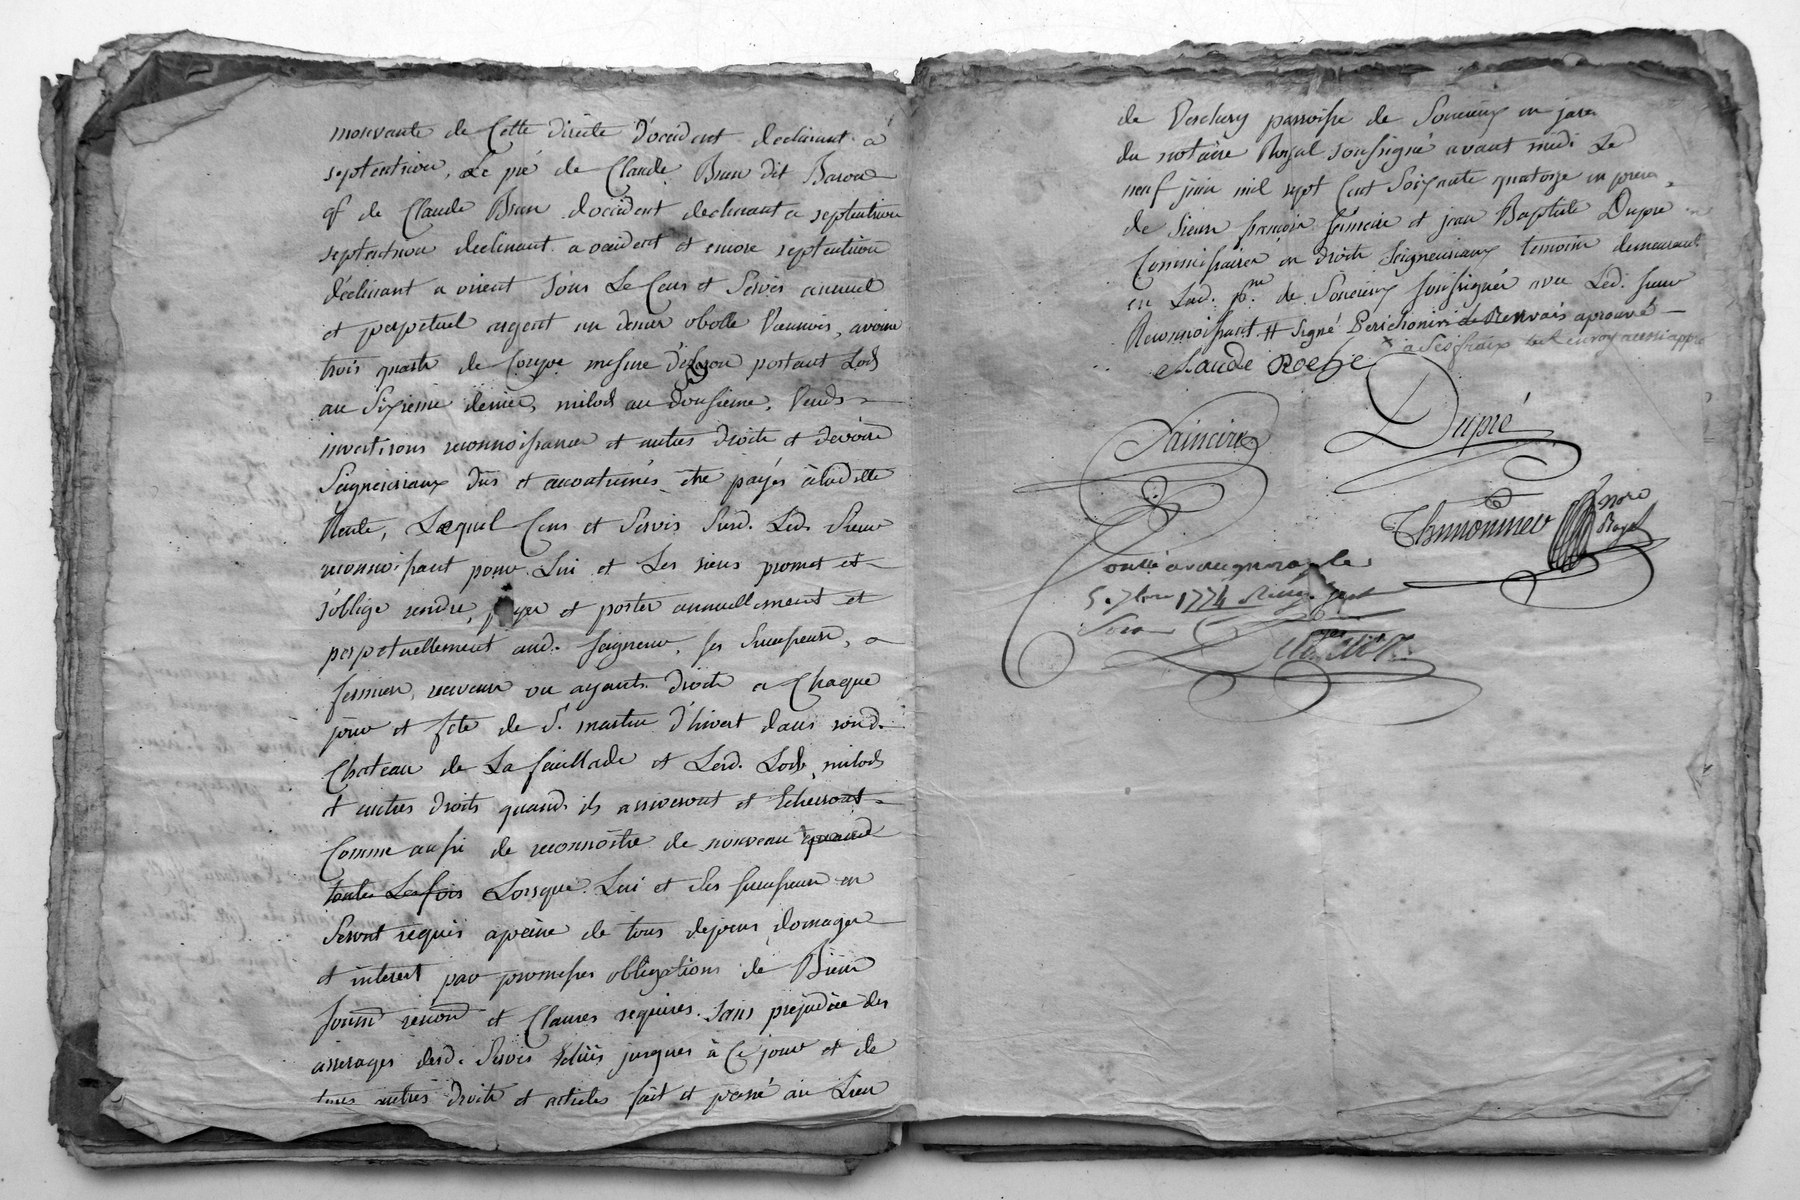 mouvante de Cette directe d'occident declinant a
septentrion, Le pré de Claude Brun dit Baron
et de Claude Brun d'occident declinant a septentrion
septentrion declinant a occident et encore septentrion
declinant a orient sous Le Cens et Servis annuel
et perpetuel argent un denier obolle Viennois, avoine
trois quarts de Coupe mesure portant Lods
au Sixieme denier, milods au dousieme, Vends
investisons reconnoissance et autres droits et devoirs
Seigneuriaux dus et accoutumés être payés à laditte
Rente, Lequel Cens et Servis Susd. Led. Sieur
reconnoissant pour Lui et Les siens promet et
s'oblige rendre, payer et porter annuellement et
perpetuellement aud. Seigneur, ses Successeurs, a
fermiers, receveurs ou ayants droits a Chaque
jour et fete de St. martin d'hivert dans sond.
Chateau de La feuillade et Lesd. Lods, milods
et autres droits quand ils arriveront et Echeiront
Comme aussi de reconnoitre de nouveau quand
toutes Les fois Lorsque Lui et Ses successeurs en
Seront requis apeine de tous depens domages
et interest par promesses obligations de Biens
soumd renond et Clauses requises. Sans prejudice des
arrerages desd. Servis Echus jusques à Ce jour et de
tous autres droits et articles fait et passé au Lieu
de parroisse de Soucieux en jarez
du notaire Royal soussigné avant midi Le
neuf juin mil sept Cent Soixante quatorze en presen
de Sieurs françois Saincire et jean Baptiste Dupré
Commissaires en droits Seigneuriaux temoins demeurants
en Lad. p.sse de Soucieux soussignés avec Led. Sieur
Reconnoissant # Signé aprouvé
a ses fraix renvoy aussi appr
Claude Roche
Dupré
Saincire
nore
Royal
Thimonnier
5. 7bre 1774